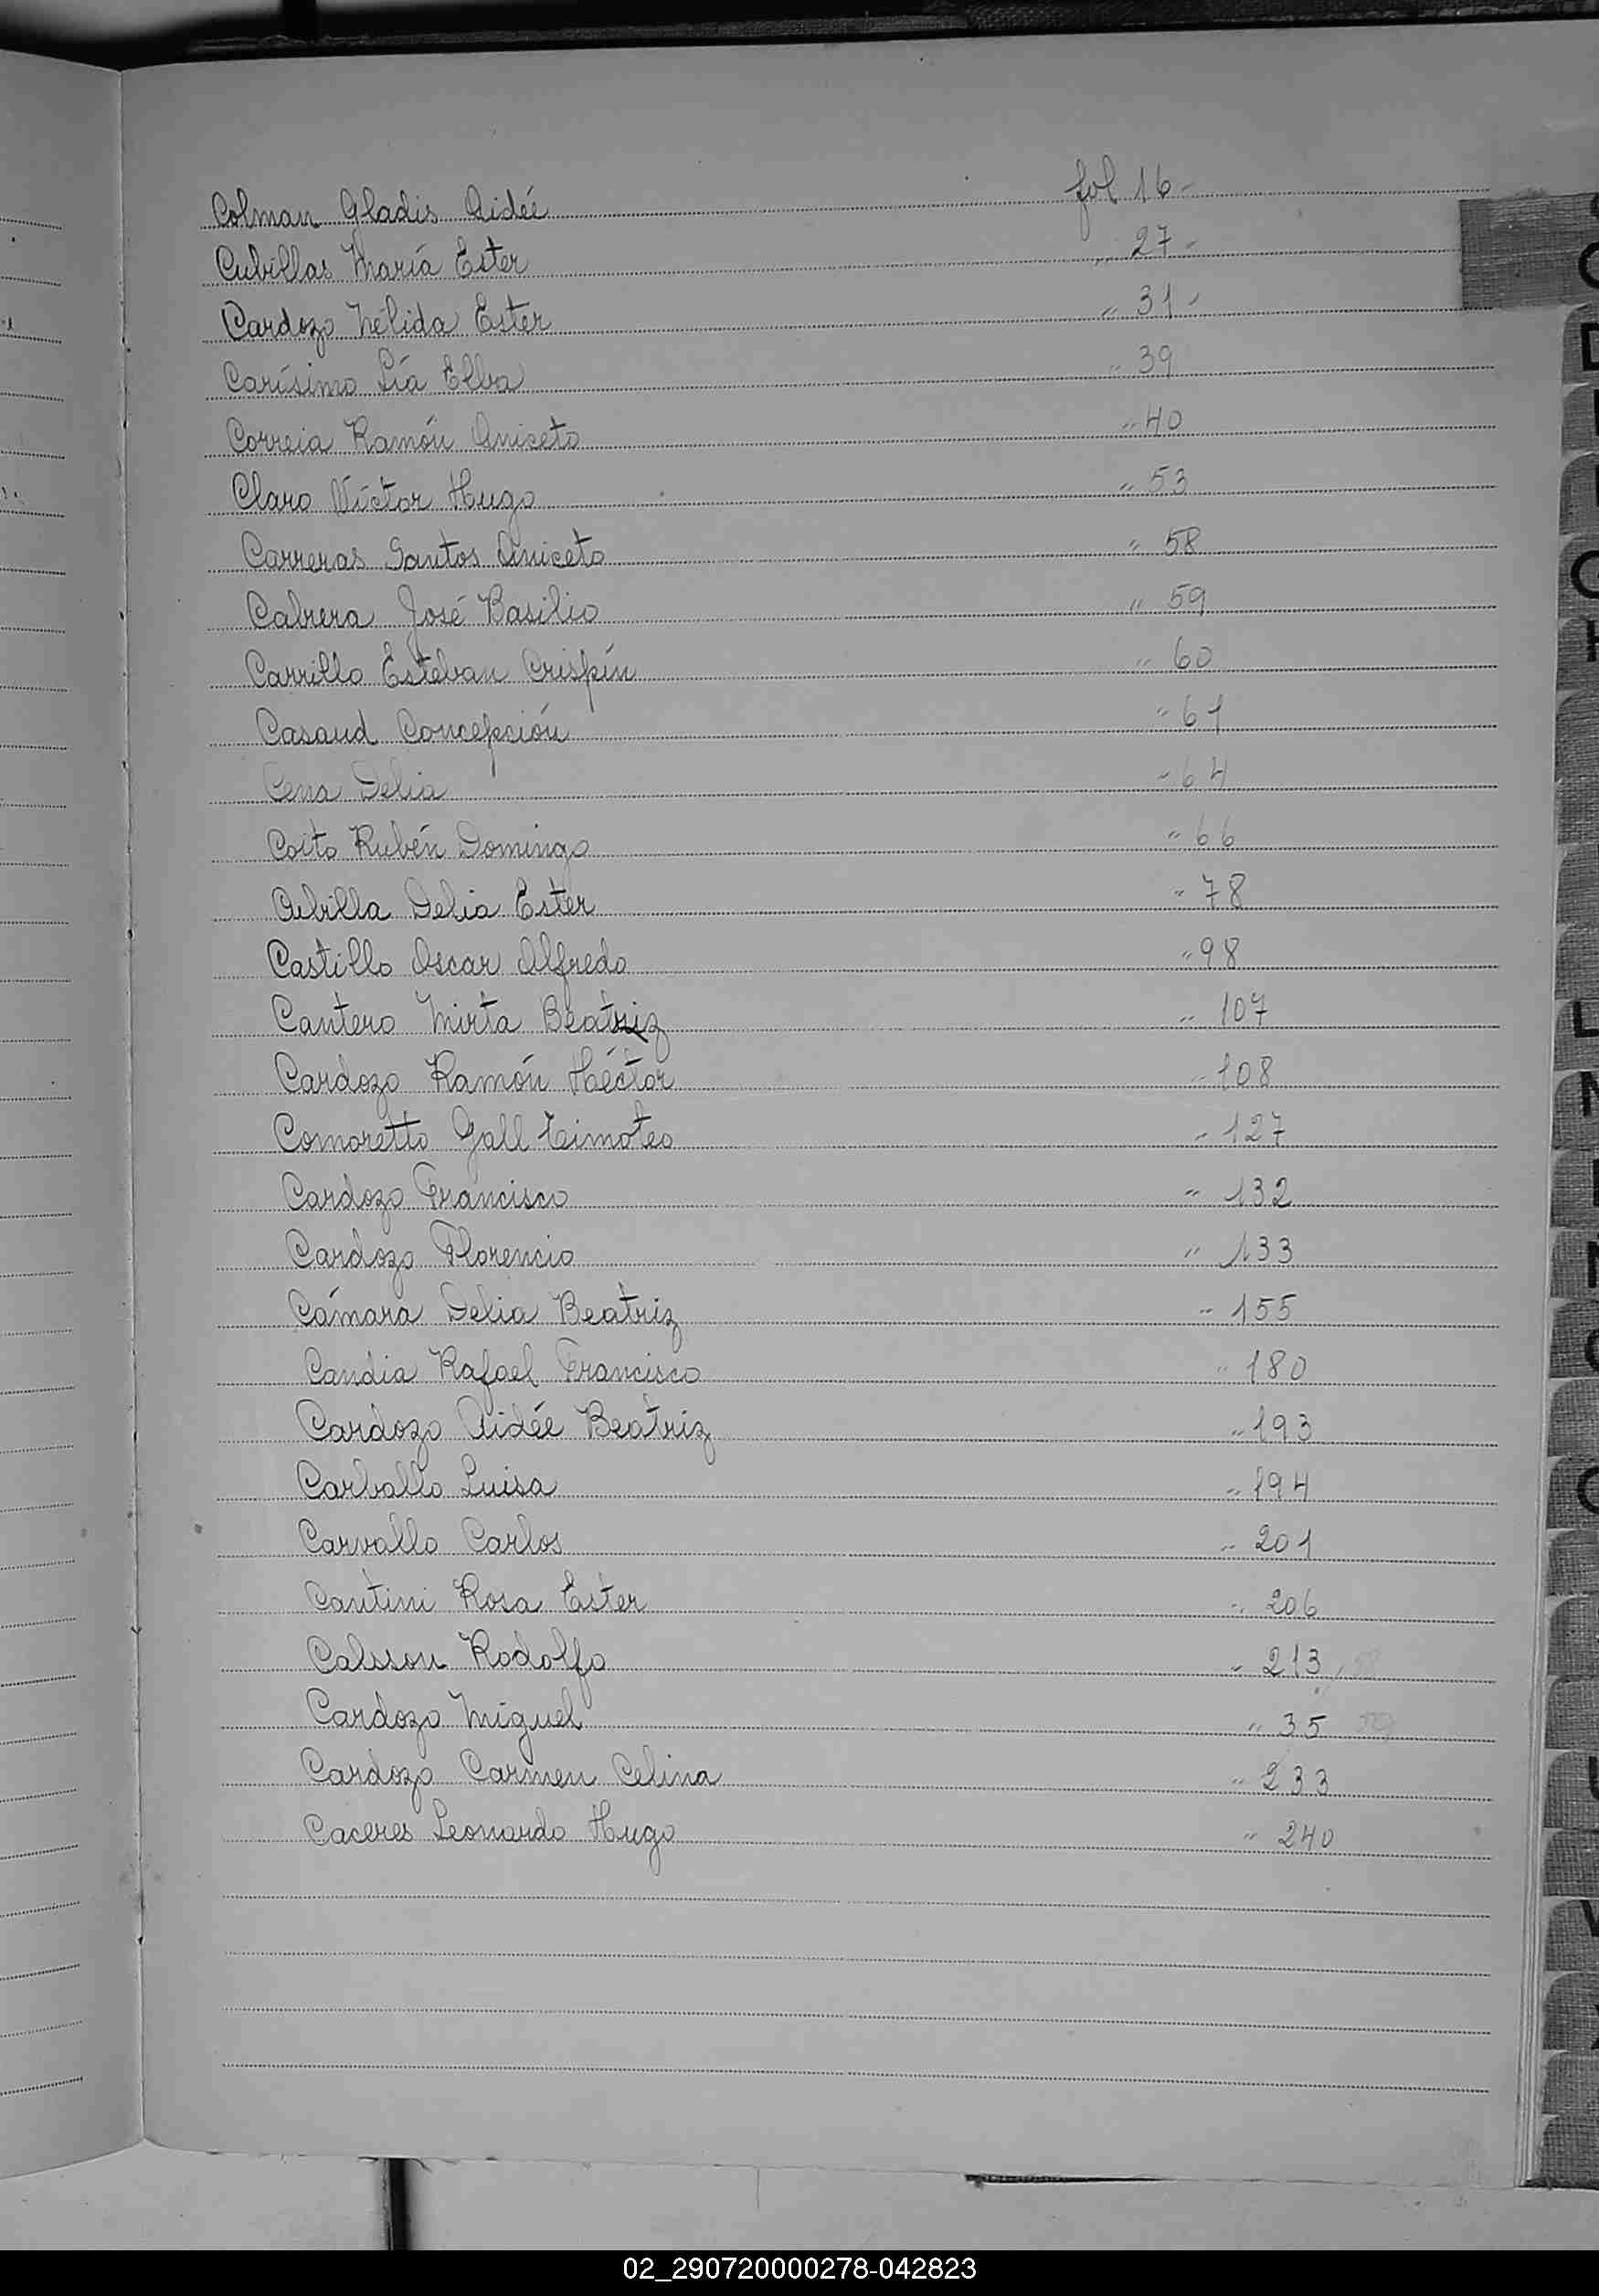 Colman Gladis Aidée fol 16-
Cubillas María Ester " 27-
Cardozo Nelida Ester " 31-
Carísimo Lía Elba " 39
Correia Ramón Aniceto " 40
Claro Víctor Hugo " 53
Carreras Santos Aniceto " 58
Cabrera José Basilio " 59
Carrillo Esteban Crispín " 60
Casaud Concepción " 61
Cena Delia " 64
Coito Rubén Domingo " 66
Cubilla Delia Ester " 78
Castillo Oscar Alfredo " 98
Cantero Mirta Beatriz " 107
Cardozo Ramón Héctor " 108
Comoretto Gall Timoteo " 127
Cardozo Francisco " 132
Cardozo Florencio " 133
Cámara Delia Beatriz " 155
Candia Rafael Francisco " 180
Cardozo Aidée Beatriz " 193
Carballo Luisa " 194
Carvallo Carlos " 201
Cantini Rosa Ester " 206
Calsson Rodolfo " 213
Cardozo Miguel " 35
Cardozo Carmen Celina " 233
Caceres Leonardo Hugo " 240
02_290720000278-042823